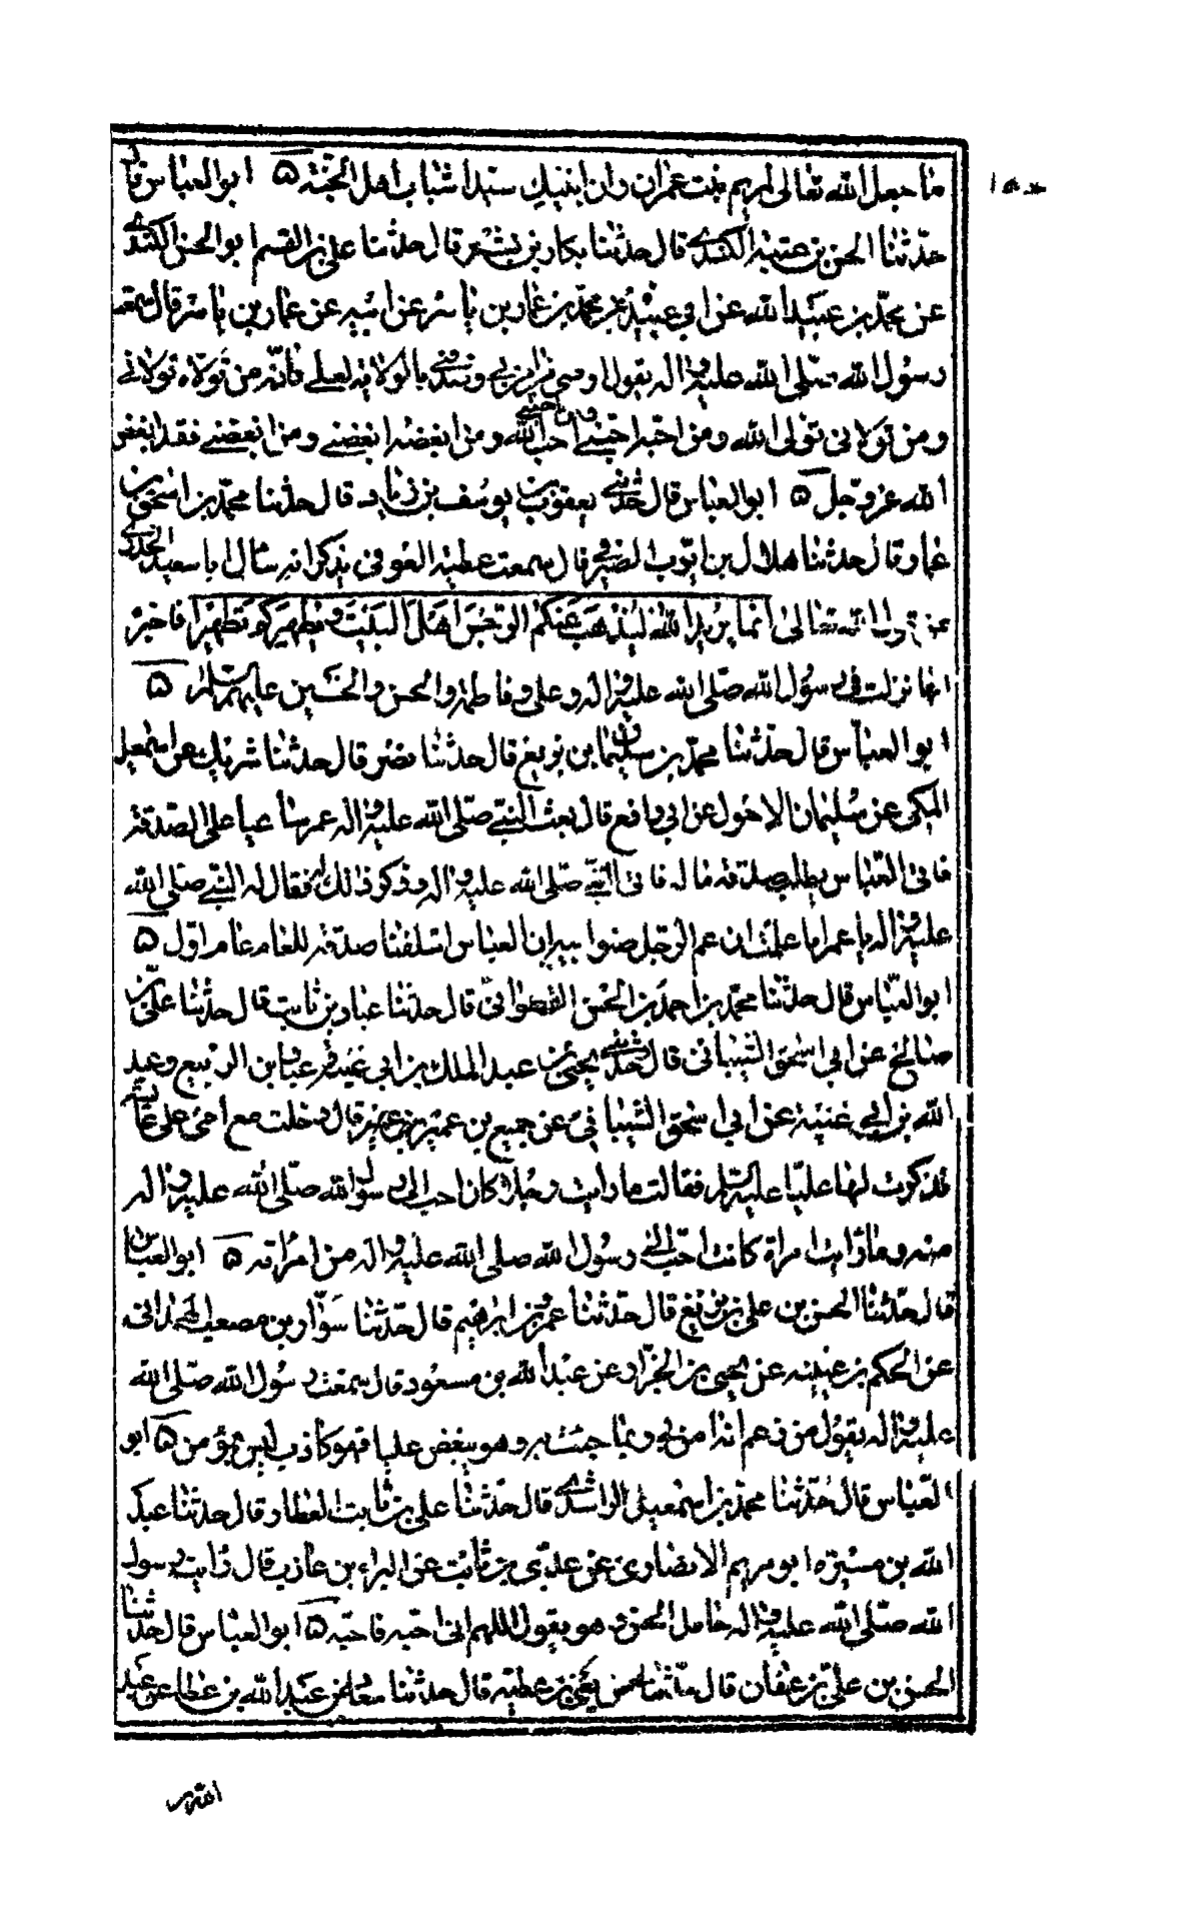 ١٥٠
ما جعل الله تعالى لمريم بنت عمران وان ابنيك سيدا شباب اهل الجنة ۵ ابو العباس قال
حدثنا الحسن بن عتبة الكندي قال حدثنا بكار بن بشر قال حدثنا علي بن القسم ابو الحسن الكندي
عن محمد بن عبيد الله عن ابي عبيدة بن محمد بن عمار بن ياسر عن ابيه عن عمار بن ياسر قال سمعت
رسول الله صلى الله عليه واله يقول اوصى من امن بي وصدقني بالولاية لعلي فانه من تولاه تولاني
ومن تولاني تولى الله ومن احبه احبني ومن احبني احب الله ومن ابغضه ابغضني ومن ابغضني فقد ابغض
الله عز وجل ۵ ابو العباس قال حدثني يعقوب بن يوسف بن زياد قال حدثنا محمد بن اسحق بن
عمار قال حدثنا هلال بن ايوب الصيرفي قال سمعت عطية العوفي يذكر انه سال ابا سعيد الخدري
عن قول الله تعالى انما يريد الله ليذهب عنكم الرجس اهل البيت ويطهركم تطهيرا فاخبره
انها نزلت في رسول الله صلى الله عليه واله وعلي وفاطمة والحسن والحسين عليهم السلام ۵
ابو العباس قال حدثنا محمد بن سليمان بن بزيع قال حدثنا نصر قال حدثنا شريك عن اسمعيل
المكي عن سليمان الاحول عن ابي رافع قال بعث النبي صلى الله عليه واله عمر ساعيا على الصدقة
فاتى العباس يطلب صدقة ماله فاتى النبي صلى الله عليه واله وذكر ذلك له فقال له النبي صلى الله
عليه واله يا عمر اما علمت ان عم الرجل صنوا بيه ان العباس اسلفنا صدقته للعام عام اول ۵
ابو العباس قال حدثنا محمد بن احمد بن الحسن القطواني قال حدثنا عباد بن ثابت قال حدثنا علي بن
صالح عن ابي اسحق الشيباني قال حدثني يحيى بن عبد الملك بن ابي غنية وعباد بن الربيع وعبد
الله بن ابي غنية عن ابي اسحق الشيباني عن جميع بن عمير قال دخلت مع امي على عائشة
فذكرت لها عليا عليه السلام فقالت ما رايت رجلا كان احب الى رسول الله صلى الله عليه واله
منه وما رايت امراة كانت احب الى رسول الله صلى الله عليه واله من امراته ۵ ابو العباس
قال حدثنا الحسن بن علي بن بزيع قال حدثنا عمر بن ابراهيم قال حدثنا سوار بن مصعب الهمداني
عن الحكم بن عيينه عن يحيى بن الجزار عن عبد الله بن مسعود قال سمعت رسول الله صلى الله
عليه واله يقول من زعم انه امن بي وبما جئت به وهو يبغض عليا فهو كاذب ليس بمؤمن ۵ ابو
العباس قال حدثنا محمد بن اسمعيل الراشدي قال حدثنا علي بن ثابت العطار قال حدثنا عبد
الله بن ميسره ابو مريم الانصاري عن عدي بن ثابت عن البراء بن عازب قال رايت رسول
الله صلى الله عليه واله حامل الحسن وهو يقول اللهم اني احبه فاحبه ۵ ابو العباس قال حدثنا
الحسن بن علي بن عفان قال حدثنا الحسن يعني بن عطية قال حدثنا سعاد عن عبد الله بن عطا عن عبد
الله بن